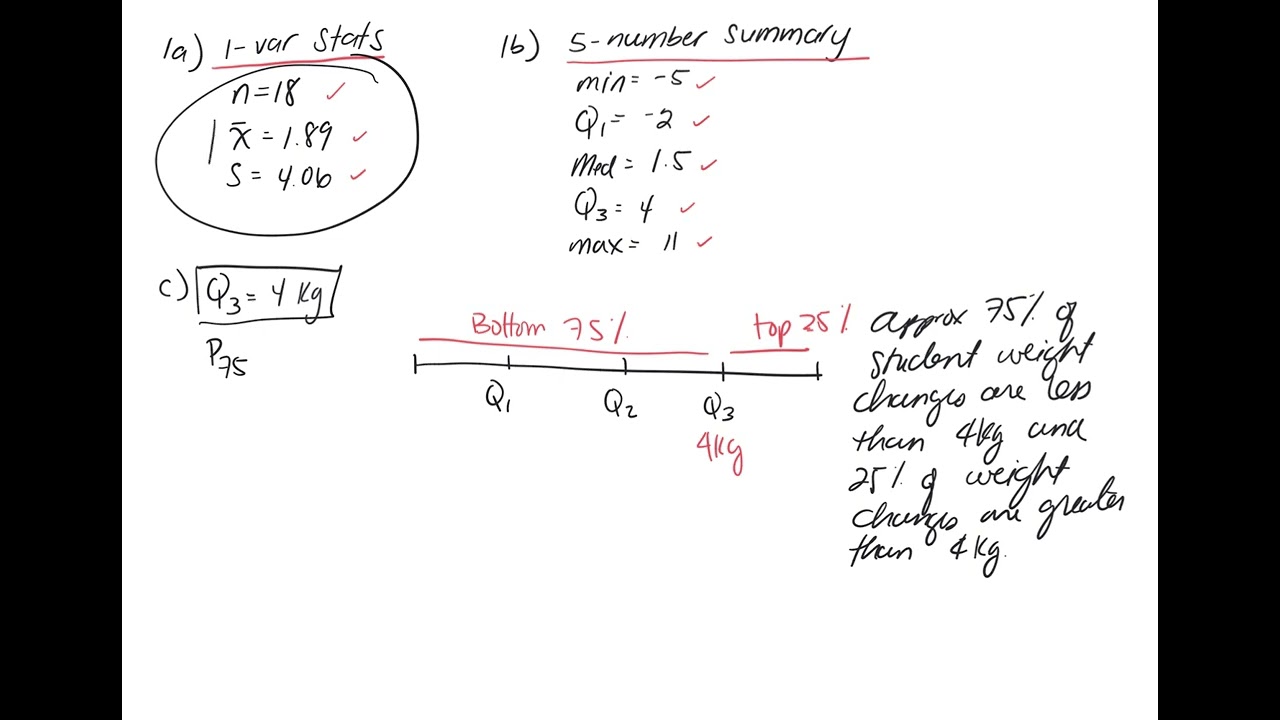 1a) 1-var stats
n=18 ✓
x̄ = 1.89 ✓
S = 4.06 ✓
1b) 5-number summary
min= -5 ✓
Q₁= -2 ✓
Med = 1.5 ✓
Q₃= 4 ✓
max= 11 ✓
c) Q₃= 4 kg
P₇₅
Bottom 75%
top 25%
Q₁ Q₂ Q₃
4kg
approx 75% of
student weight
changes are less
than 4kg and
25% of weight
changes are greater
than 4kg.